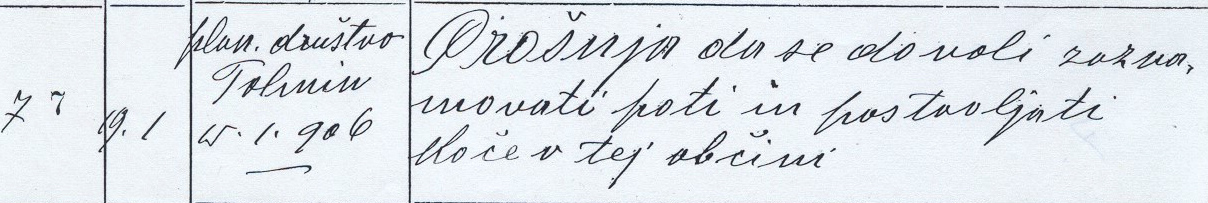 plan. društvo
Tolmin
15. 1. 906
77
19. 1
Prošnja da se dovoli zazna-
movati poti in postavljati
koče v tej občini